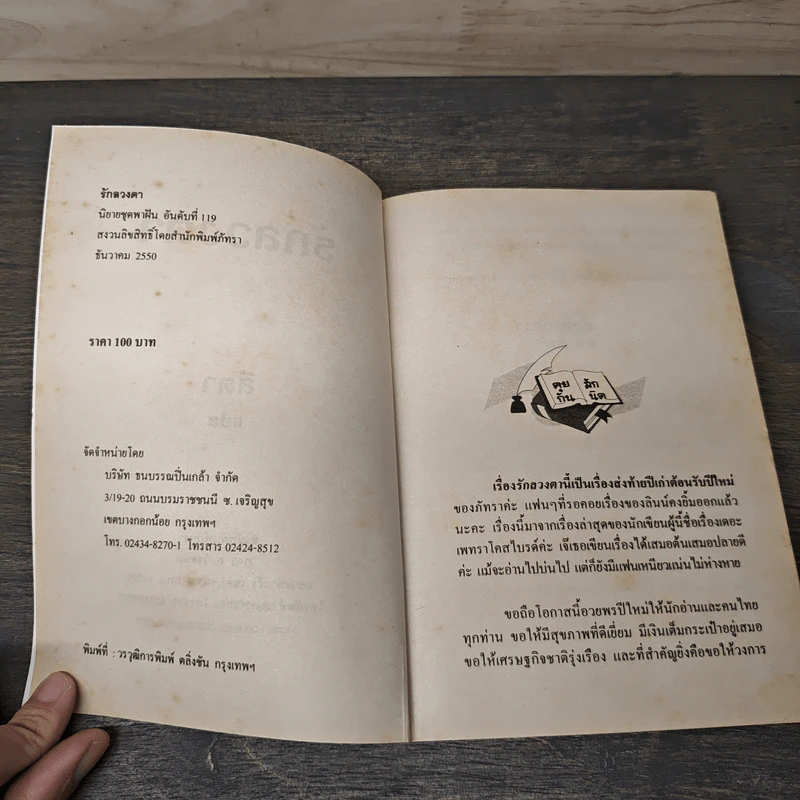 รักลวงตา
นิยายชุดพาฝัน อันดับที่ 119
สงวนลิขสิทธิ์โดยสำนักพิมพ์ภัทรา
ธันวาคม 2550
ราคา 100 บาท
จัดจำหน่ายโดย
บริษัท ธนบรรณปิ่นเกล้า จำกัด
3/19-20 ถนนบรมราชชนนี ซ. เจริญสุข
เขตบางกอกน้อย กรุงเทพฯ
โทร. 02434-8270-1 โทรสาร 02424-8512
พิมพ์ที่ : วรวุฒิการพิมพ์ ตลิ่งชัน กรุงเทพฯ
คุย สัก
กัน นิด
เรื่องรักลวงตานี้เป็นเรื่องส่งท้ายปีเก่าต้อนรับปีใหม่
ของภัทราค่ะ แฟนๆที่รอคอยเรื่องของลินน์คงยิ้มออกแล้ว
นะคะ เรื่องนี้มาจากเรื่องล่าสุดของนักเขียนผู้นี้ชื่อเรื่องเดอะ
เพทราโคสไบรด์ค่ะ เจ๊เธอเขียนเรื่องได้เสมอต้นเสมอปลายดี
ค่ะ แม้จะอ่านไปบ่นไป แต่ก็ยังมีแฟนเหนียวแน่นไม่ห่างหาย
ขอถือโอกาสนี้อวยพรปีใหม่ให้นักอ่านและคนไทย
ทุกท่าน ขอให้มีสุขภาพที่ดีเยี่ยม มีเงินเต็มกระเป๋าอยู่เสมอ
ขอให้เศรษฐกิจชาติรุ่งเรือง และที่สำคัญยิ่งคือขอให้วงการ